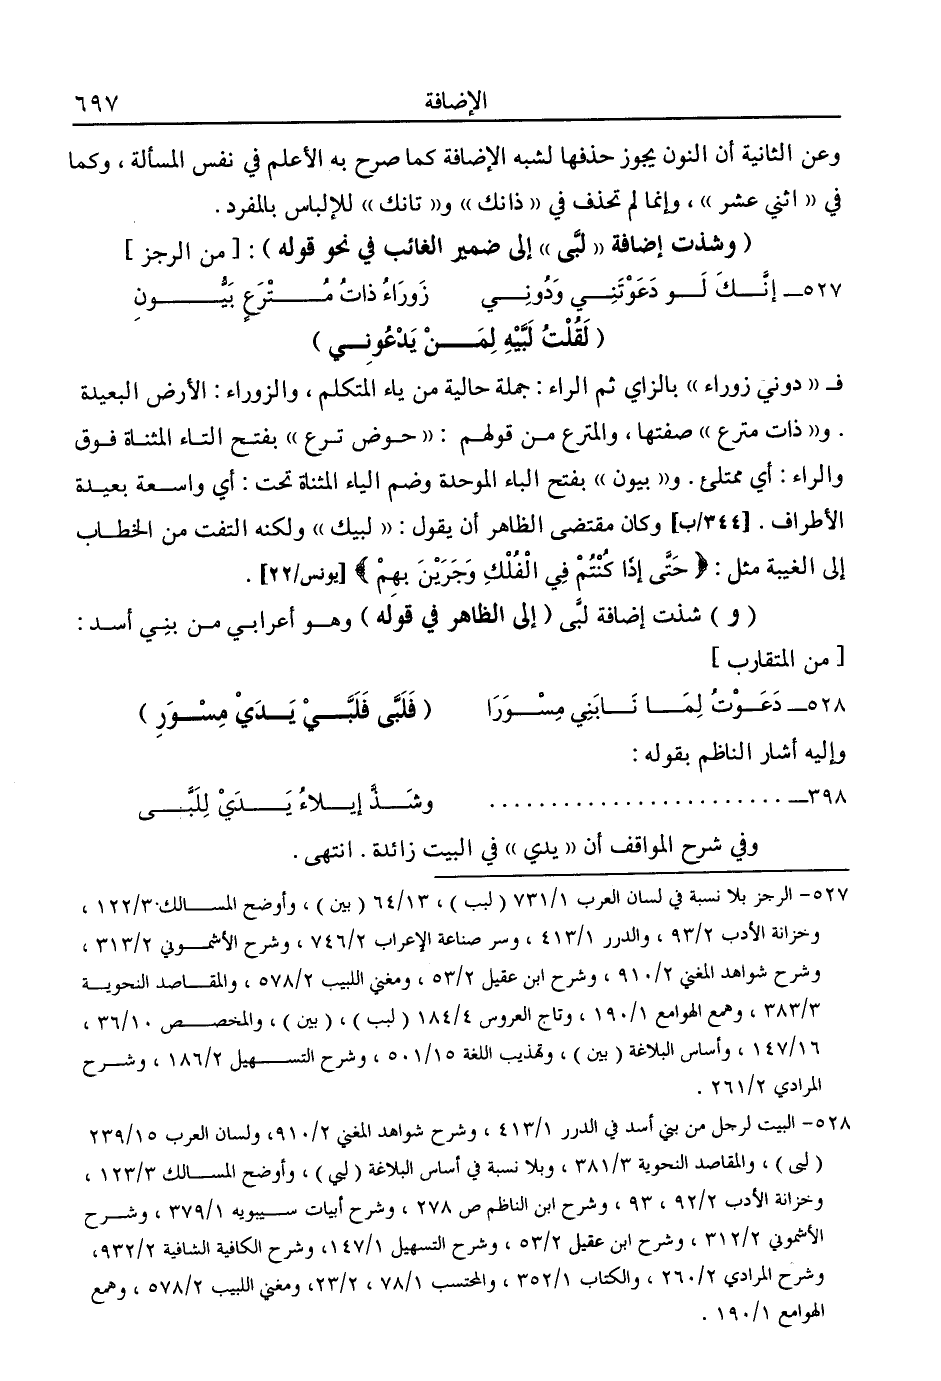 الإضافة ٦٩٧
وعن الثانية أن النون يجوز حذفها لشبه الإضافة كما صرح به الأعلم في نفس المسألة ، وكما
في « اثني عشر » ، وإنما لم تحذف في « ذانك » و« تانك » للإلباس بالمفرد .
( وشذت إضافة « لبَّى » إلى ضمير الغائب في نحو قوله ) : [ من الرجز ]
٥٢٧ــ إنَّــكَ لَــو دَعَوْتَنِــي وَدُونِــي زَوْرَاءُ ذَاتُ مُــتْرَعٍ بَيُّــونِ
( لَقُلْتُ لَبَّيْهِ لِمَــنْ يَدْعُونِــي )
فـ « دوني زوراء » بالزاي ثم الراء : جملة حالية من ياء المتكلم ، والزوراء : الأرض البعيدة
. و« ذات مترع » صفتها ، والمترع مـن قولهم : « حـوض تـرع » بفتـح التـاء المثنـاة فـوق
والراء : أي ممتلئ . و« بيون » بفتح الباء الموحدة وضم الياء المثناة تحت : أي واسـعة بعيـدة
الأطراف . [٣٤٤/ب] وكان مقتضى الظاهر أن يقول : « لبيك » ولكنه التفت مـن الخطـاب
إلى الغيبة مثل : ﴿ حَتَّى إذَا كُنْتُمْ فِي الْفُلْكِ وَجَرَيْنَ بِهِمْ ﴾ [يونس/٢٢] .
( و ) شذت إضافة لبَّى ( إلى الظاهر في قوله ) وهـو أعرابـي مـن بنِـي أسـد :
[ من المتقارب ]
٥٢٨ــ دَعَــوْتُ لِمَــا نَــابَنِي مِسْــوَرَا ( فَلَبَّى فَلَبَّــيْ يَــدَيْ مِسْــوَرِ )
وإليه أشار الناظم بقوله :
٣٩٨ــ . . . . . . . . . . . . . . . . . . . . . . . . وشَــذَّ إيــلاءُ يَــدَيْ لِلَبَّــى
وفي شرح المواقف أن « يدي » في البيت زائدة . انتهى .
٥٢٧- الرجز بلا نسبة في لسان العرب ٧٣١/١ ( لبب ) ، ٦٤/١٣ ( بين ) ، وأوضح المســالك ١٢٢/٣ ،
وخزانة الأدب ٩٣/٢ ، والدرر ٤١٣/١ ، وسر صناعة الإعراب ٧٤٦/٢ ، وشرح الأشمــوني ٣١٣/٢ ،
وشرح شواهد المغني ٩١٠/٢ ، وشرح ابن عقيل ٥٣/٢ ، ومغني اللبيب ٥٧٨/٢ ، والمقــاصد النحويــة
٣٨٣/٣ ، وهمع الهوامع ١٩٠/١ ، وتاج العروس ١٨٤/٤ ( لبب ) ، ( بين ) ، والمخصــص ٣٦/١٠ ،
١٤٧/١٦ ، وأساس البلاغة ( بين ) ، وتهذيب اللغة ٥٠١/١٥ ، وشرح التســهيل ١٨٦/٢ ، وشــرح
المرادي ٢٦١/٢ .
٥٢٨- البيت لرجل من بني أسد في الدرر ٤١٣/١ ، وشرح شواهد المغني ٩١٠/٢، ولسان العرب ٢٣٩/١٥
( لبى ) ، والمقاصد النحوية ٣٨١/٣ ، وبلا نسبة في أساس البلاغة ( لبي ) ، وأوضح المســالك ١٢٣/٣ ،
وخزانة الأدب ٩٢/٢ ، ٩٣ ، وشرح ابن الناظم ص ٢٧٨ ، وشرح أبيات ســيبويه ٣٧٩/١ ، وشــرح
الأشموني ٣١٢/٢ ، وشرح ابن عقيل ٥٣/٢ ، وشرح التسهيل ١٤٧/١، وشرح الكافية الشافية ٩٣٢/٢،
وشرح المرادي ٢٦٠/٢ ، والكتاب ٣٥٢/١ ، والمحتسب ٧٨/١ ، ٢٣/٢، ومغني اللبيب ٥٧٨/٢ ، وهمع
الهوامع ١٩٠/١ .